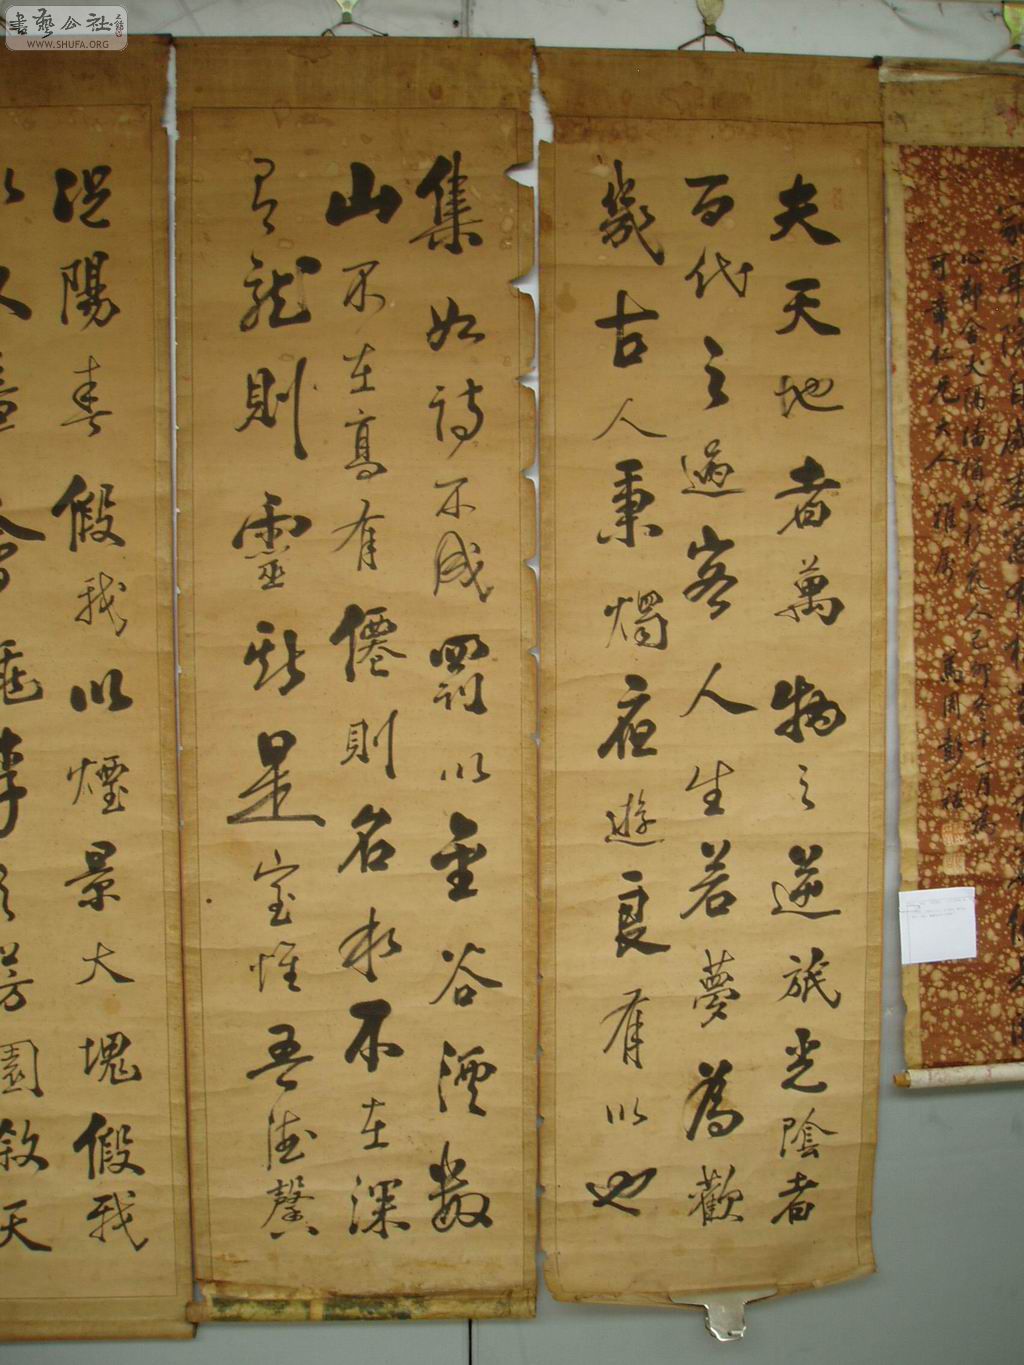 書藝公社
WWW.SHUFA.ORG
仁兄大人 雅屬
夫天地者萬物之逆旅光陰者
百代之過客人生若夢為歡
幾古人秉燭夜遊良有以也
集如詩不成罰以金谷酒數
山不在高有僊則名水不在深
有龍則靈斯是室惟吾德馨
況陽春假我以煙景大塊假我
以文章會桃李之芳園敘天